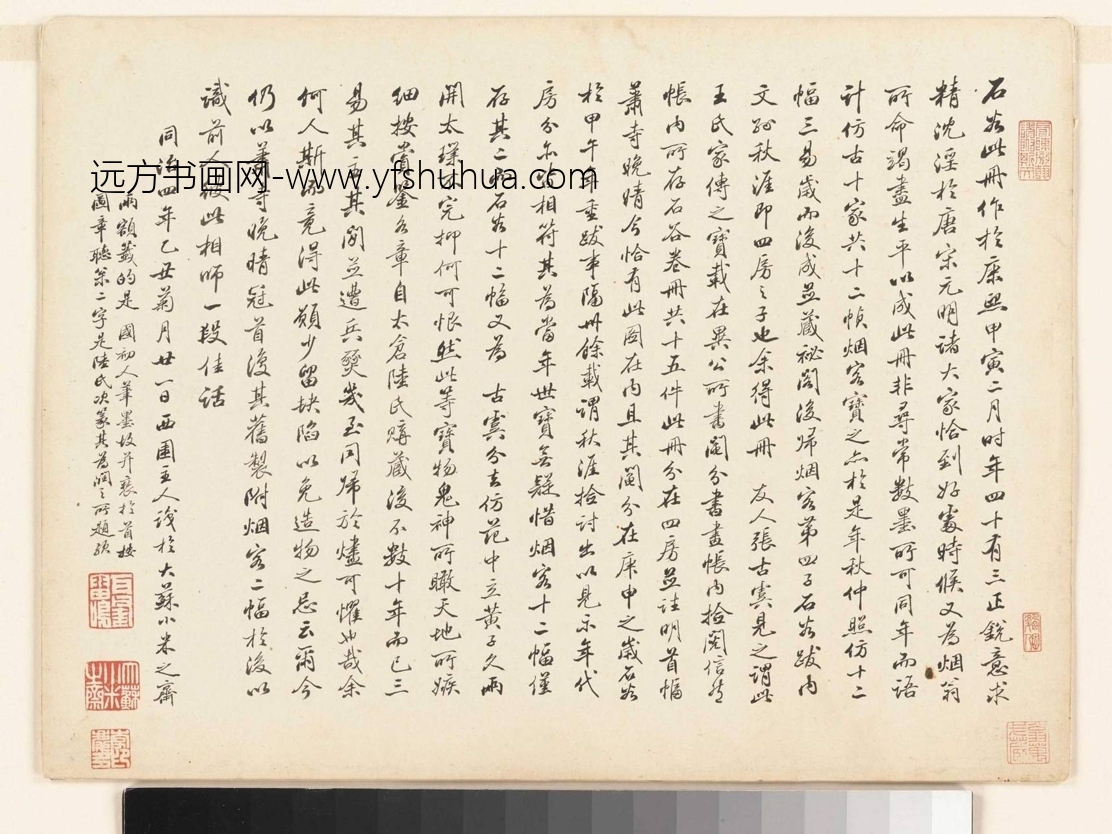 石谷此冊作於康熙甲寅二月時年四十有三正銳意求
精沈淫於唐宋元明諸大家恰到好處時候又為烟翁
所命竭盡生平以成此冊非尋常數墨所可同年而語
計仿古十家共十二幀烟客寶之亦於是年秋仲照仿十二
幅三易歲而後成並藏祕閣後歸烟客第四子石谷跋內
文孫秋涯即四房之子也余得此冊 友人張古虞見之謂此
王氏家傳之寶載在異公所書鬮分書畫帳內拾閱信然
帳內所存石谷卷冊共十五件此冊分在四房並註明首幅
蕭寺晚晴今恰有此圖在內且其鬮分在庚申之歲石谷
於甲午年重跋事隔卅餘載謂秋涯拾討出以見示年代
房分亦皆相符其為當年世寶無疑惜烟客十二幅僅
存其二即石谷十二幅又為 古虞分去仿范中立黃子久兩
開太璞不完抑何可恨然此等寶物鬼神所瞰天地所嫉
細按賞鑒各章自太倉陸氏購藏後不數十年而已三
易其主其間並遭兵燹幾至同歸於燼可懼也哉余
何人斯竟得此願少留缺陷以免造物之忌云爾今
仍以蕭寺晚晴冠首復其舊製附烟客二幅於後以
識前人彼此相師一段佳話
同治四年乙丑菊月廿一日西圃主人識於大蘇小米之齋
兩額籤的是 國初人筆墨故并裱於首按
圖章聽
二字是陸氏
其為
之所題
远方书画网-www.yfshuhua.com